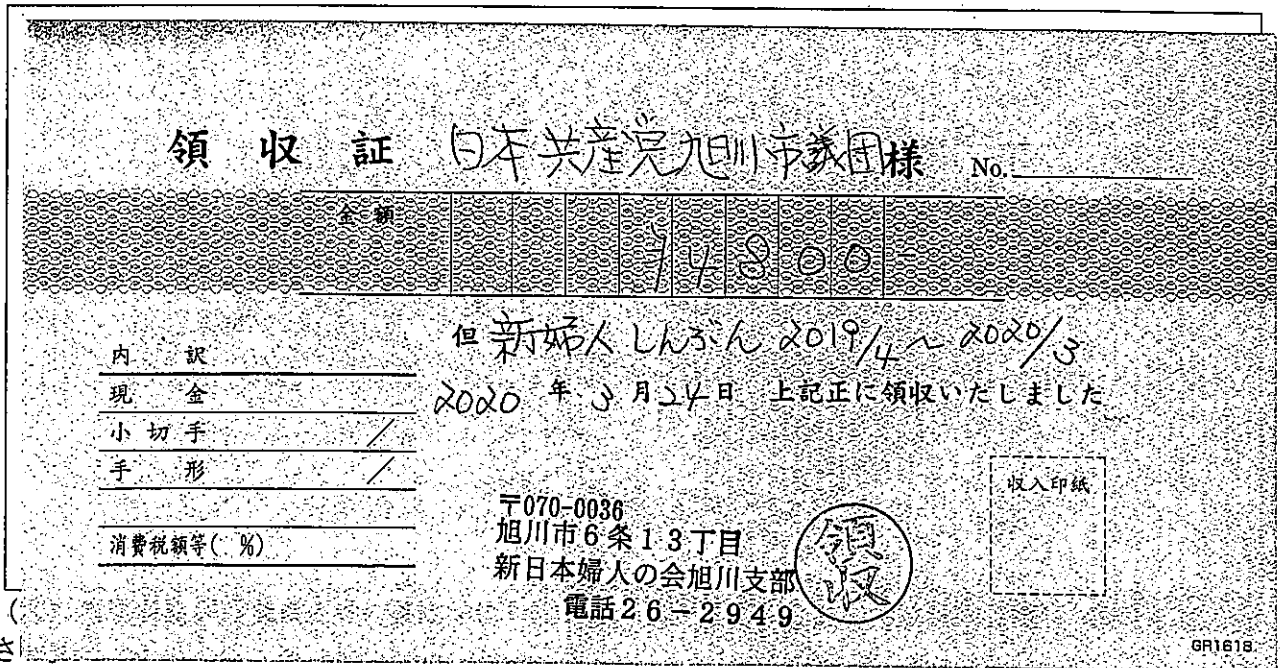 領収証 日本共産党旭川市議団様 No.
金額 14800-
但 新婦人しんぶん 2019/4~2020/3
2020年3月24日 上記正に領収いたしました
内訳
現金
小切手 /
手形 /
消費税額等( %)
〒070-0036
旭川市6条13丁目
新日本婦人の会旭川支部
電話26-2949
領収
収入印紙
GR1618